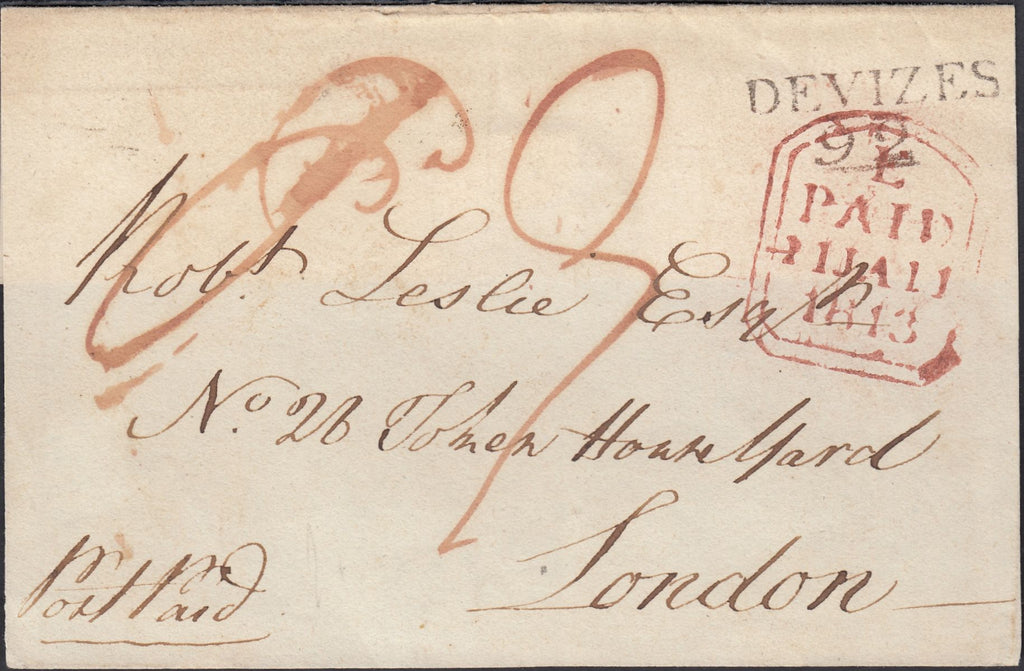 DEVIZES
92
L
PAID
11 JA 11
1813
Pd 9
Robt. Leslie Esqr
No. 26 Token House Yard
London
Post Paid